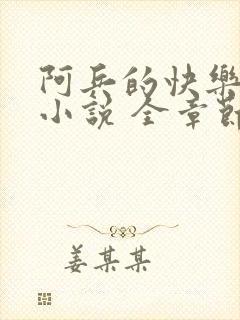 阿兵的快樂
小說 全章節
姜某某